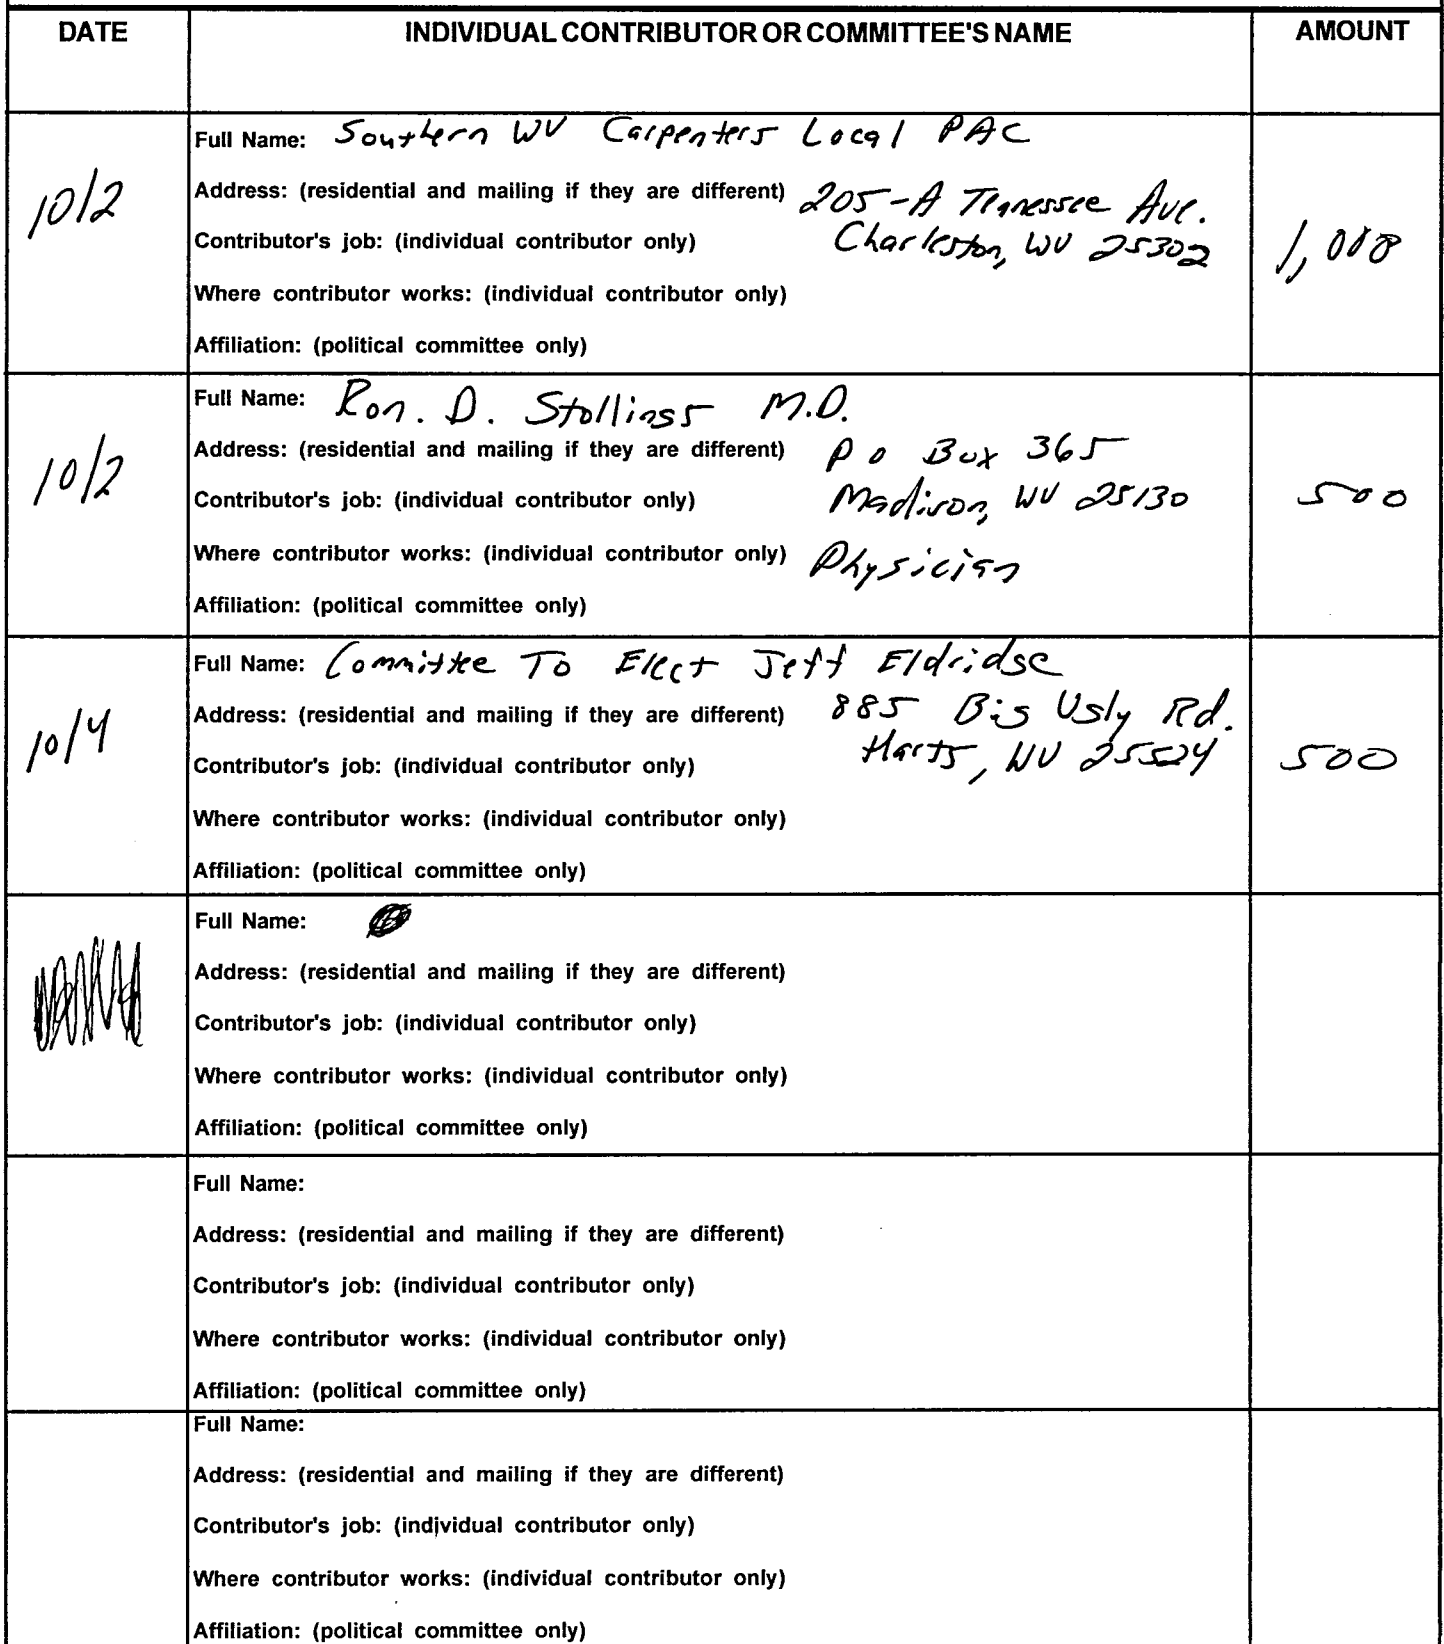 DATE INDIVIDUAL CONTRIBUTOR OR COMMITTEE'S NAME AMOUNT
Full Name: Southern WV Carpenters Local PAC
10/2
Address: (residential and mailing if they are different) 205-A Tennessee Ave.
Contributor's job: (individual contributor only) Charleston, WV 25302
1,000
Where contributor works: (individual contributor only)
Affiliation: (political committee only)
Full Name: Ron. D. Stollings M.D.
Address: (residential and mailing if they are different) P O Box 365
10/2
Contributor's job: (individual contributor only) Madison, WV 25130
500
Where contributor works: (individual contributor only) Physician
Affiliation: (political committee only)
Full Name: Committee To Elect Jeff Eldridge
Address: (residential and mailing if they are different) 885 Big Ugly Rd.
10/4
Contributor's job: (individual contributor only) Harts, WV 25524
500
Where contributor works: (individual contributor only)
Affiliation: (political committee only)
Full Name:
Address: (residential and mailing if they are different)
Contributor's job: (individual contributor only)
Where contributor works: (individual contributor only)
Affiliation: (political committee only)
Full Name:
Address: (residential and mailing if they are different)
Contributor's job: (individual contributor only)
Where contributor works: (individual contributor only)
Affiliation: (political committee only)
Full Name:
Address: (residential and mailing if they are different)
Contributor's job: (individual contributor only)
Where contributor works: (individual contributor only)
Affiliation: (political committee only)